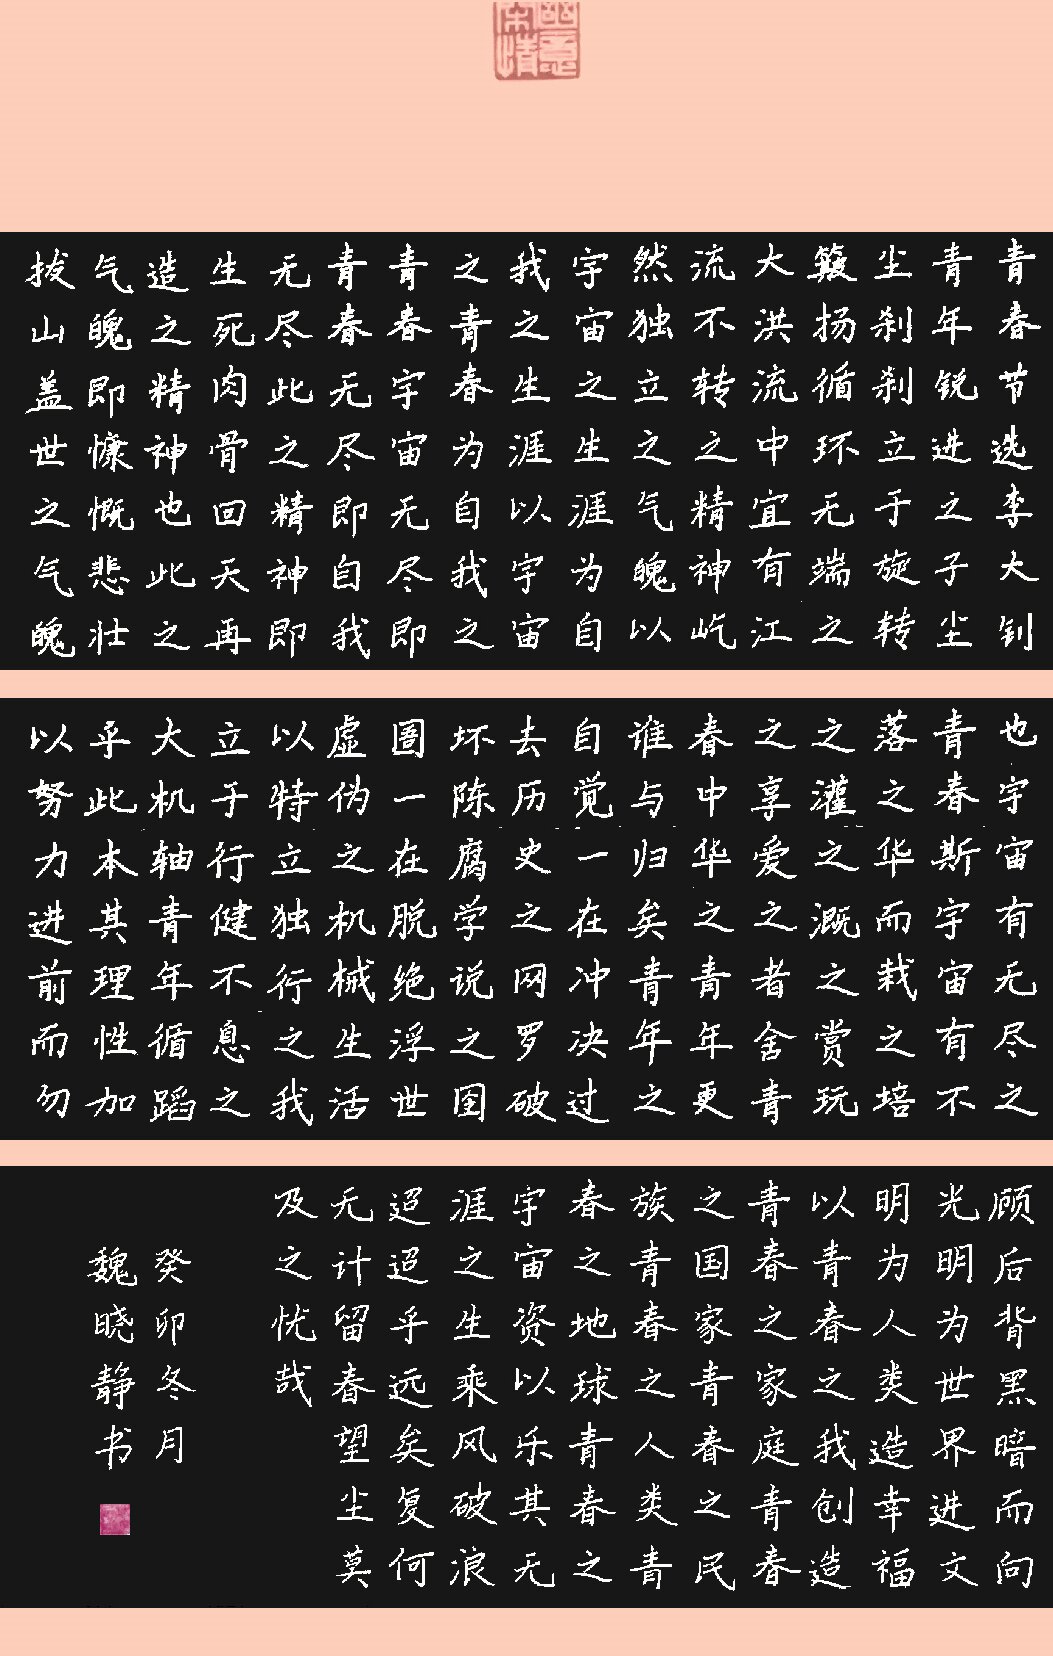 青春节选李大钊
青年锐进之子尘
尘刹刹立于旋转
簸扬循环无端之
大洪流中宜有江
流不转之精神屹
然独立之气魄以
宇宙之生涯为自
我之生涯以宇宙
之青春为自我之
青春宇宙无尽即
青春无尽即自我
无尽此之精神即
生死肉骨回天再
造之精神也此之
气魄即慷慨悲壮
拔山盖世之气魄
也宇宙有无尽之
青春斯宇宙有不
落之华而栽之培
之灌之溉之赏玩
之享爱之者舍青
春中华之青年更
谁与归矣青年之
自觉一在冲决过
去历史之网罗破
坏陈腐学说之囹
圄一在脱绝浮世
虚伪之机械生活
以特立独行之我
立于行健不息之
大机轴青年循蹈
乎此本其理性加
以努力进前而勿
顾后背黑暗而向
光明为世界进文
明为人类造幸福
以青春之我创造
青春之家庭青春
之国家青春之民
族青春之人类青
春之地球青春之
宇宙资以乐其无
涯之生乘风破浪
迢迢乎远矣复何
无计留春望尘莫
及之忧哉
癸卯冬月
魏晓静书